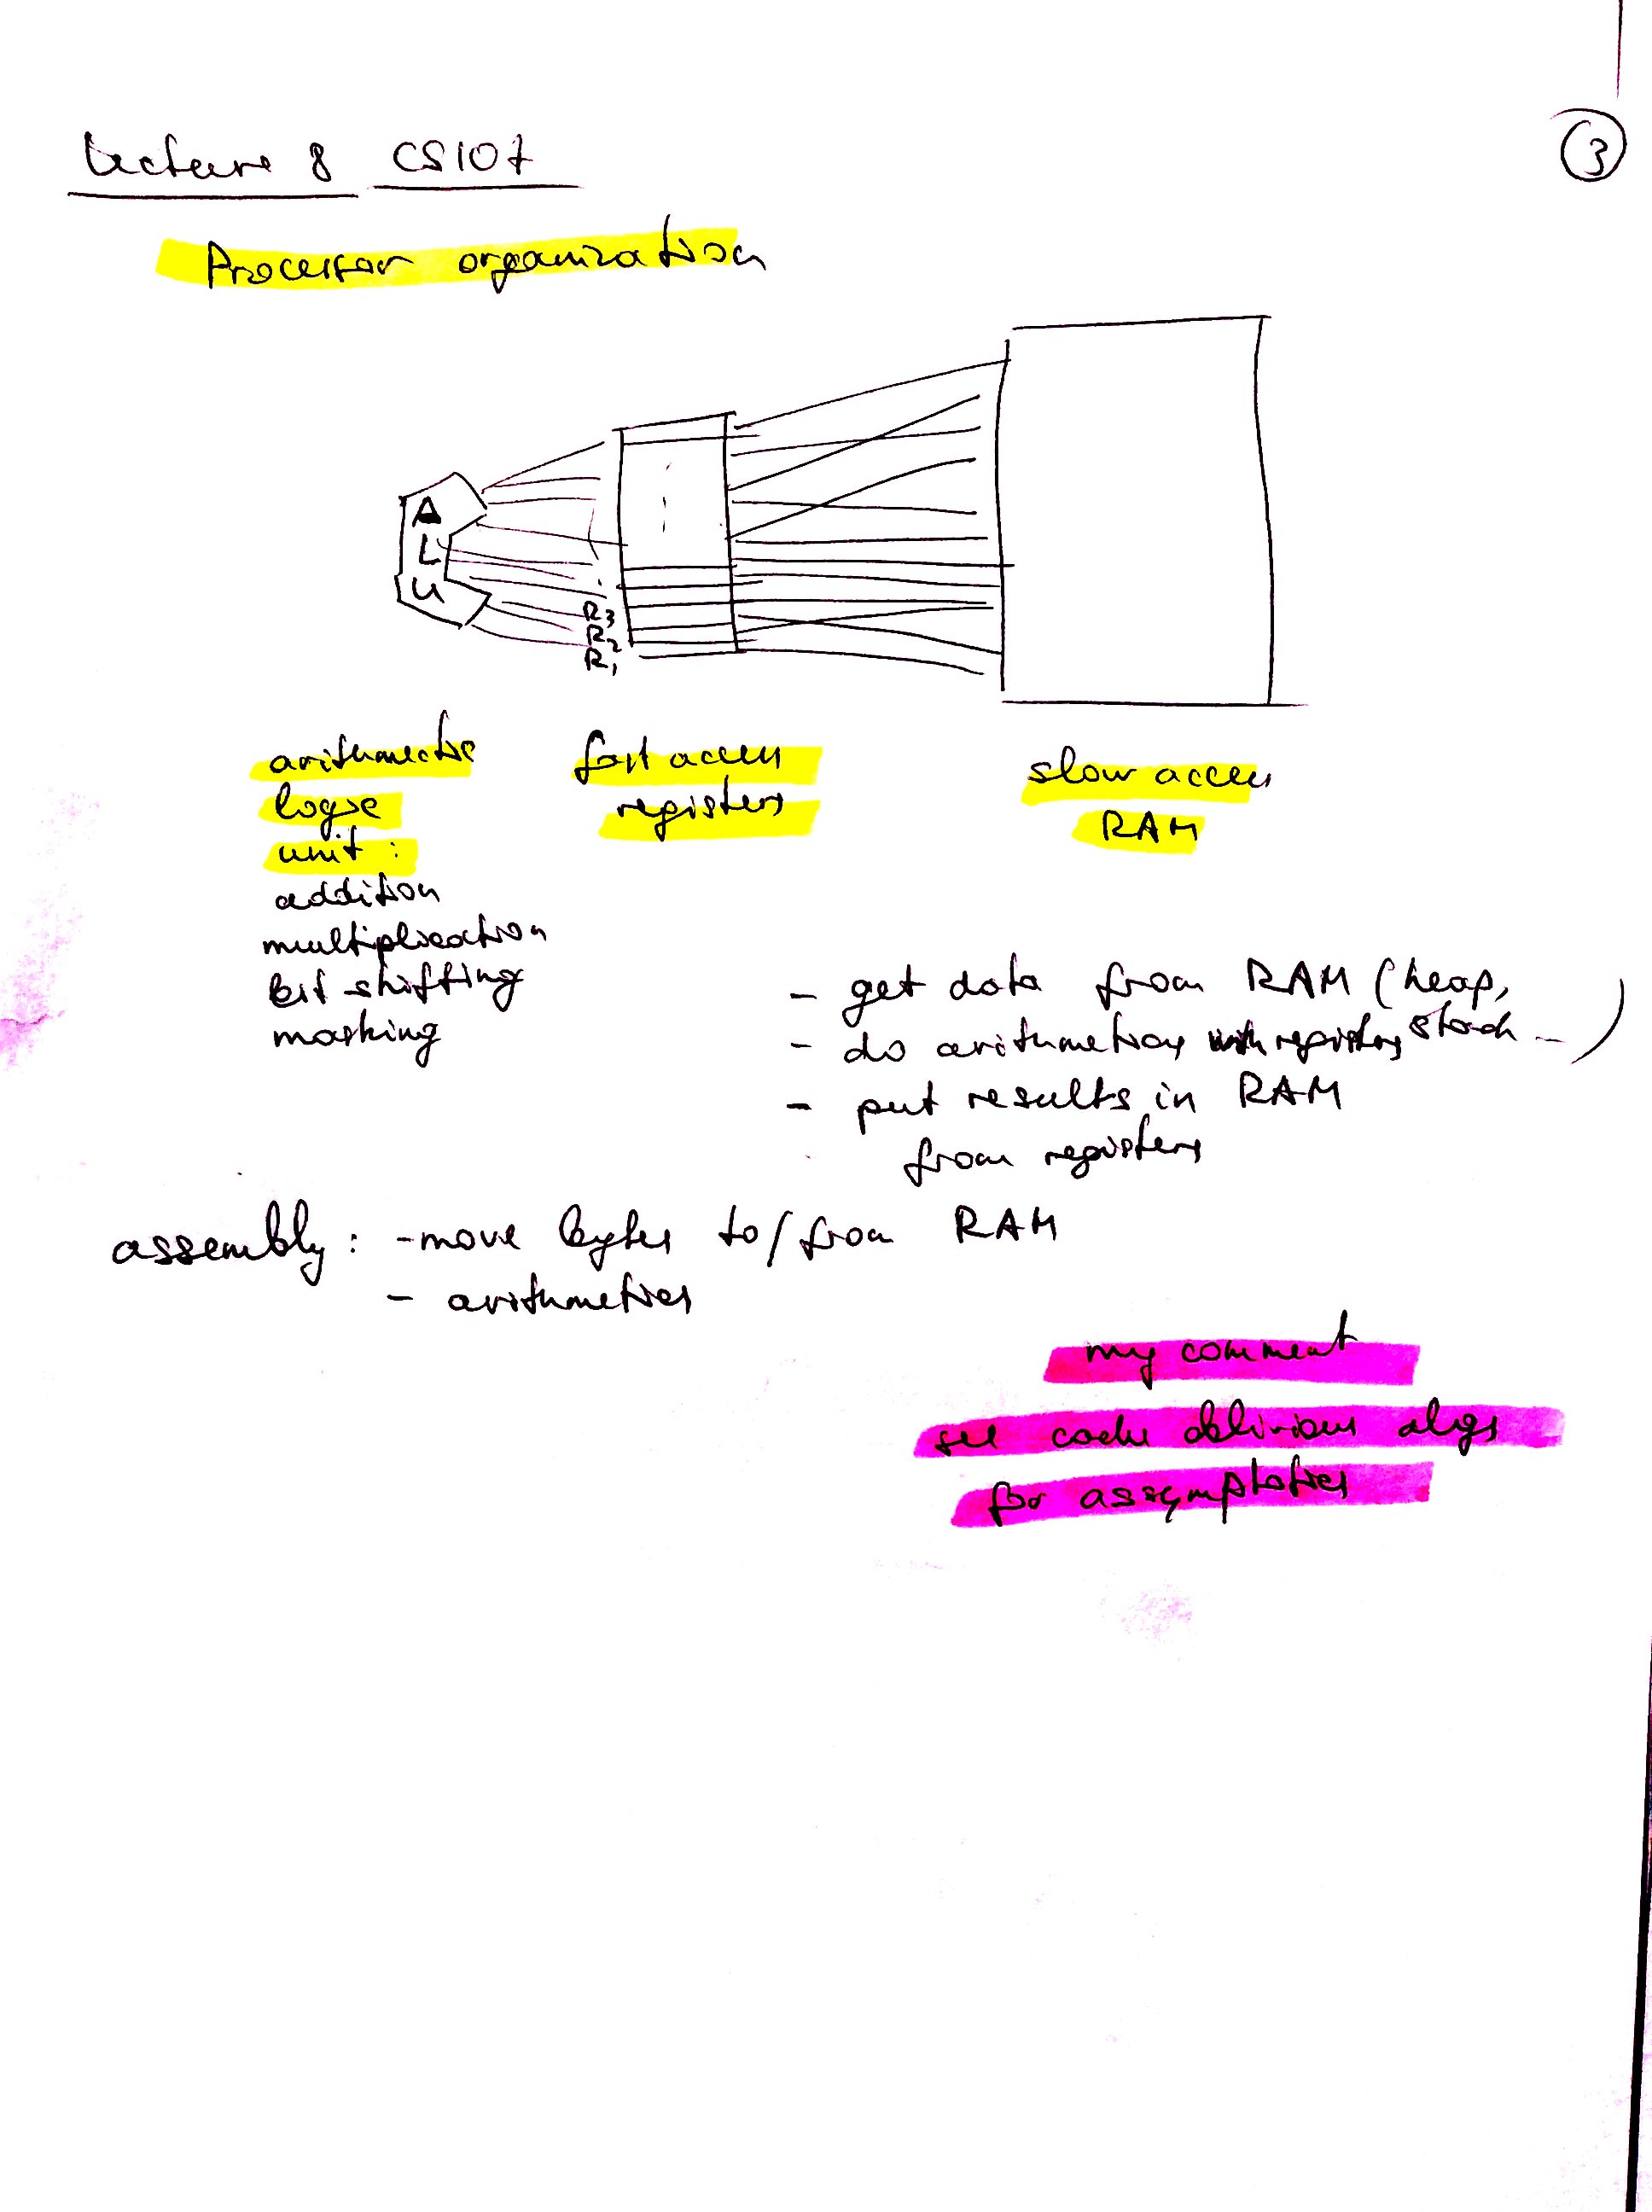 Lecture 8 CS107
3
Processor organization
A
L
U
R3
R2
R1
arithmetic
logic
unit :
addition
multiplication
bit shifting
masking
fast access
registers
slow access
RAM
- get data from RAM (heap, stack - )
- do arithmetics with registers
- put results in RAM
from registers
assembly : - move bytes to/from RAM
- arithmetics
my comment
see cache oblivious algs
for assymptotics